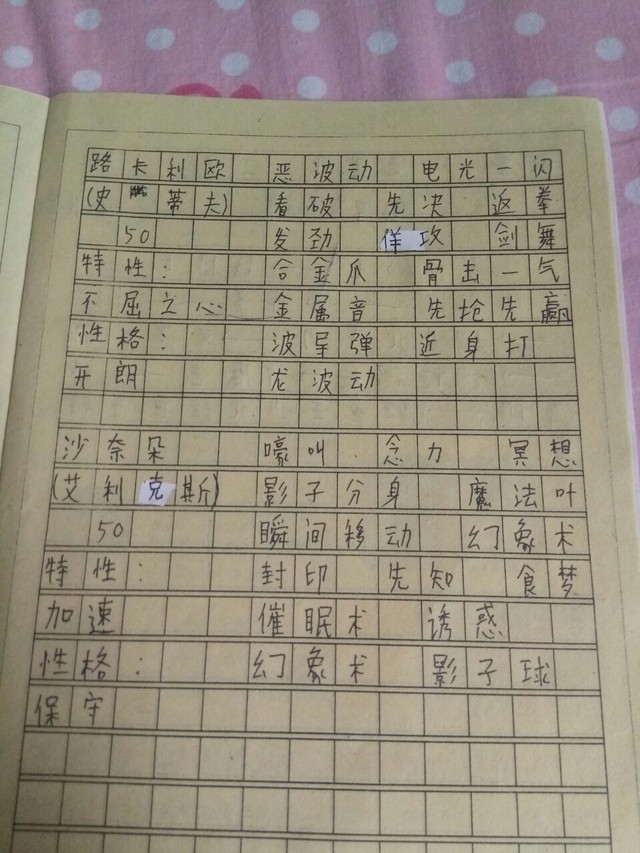 路卡利欧 恶波动 电光一闪
(史蒂夫) 看破 先决 返拳
50 发劲 佯攻 剑舞
特性: 合金爪 骨击一气
不屈之心 金属音 先抢先赢
性格: 波导弹 近身打
开朗 龙波动
沙奈朵 嚎叫 念力 冥想
(艾利克斯) 影子分身 魔法叶
50 瞬间移动 幻象术
特性: 封印 先知 食梦
加速 催眠术 诱惑
性格: 幻象术 影子球
保守